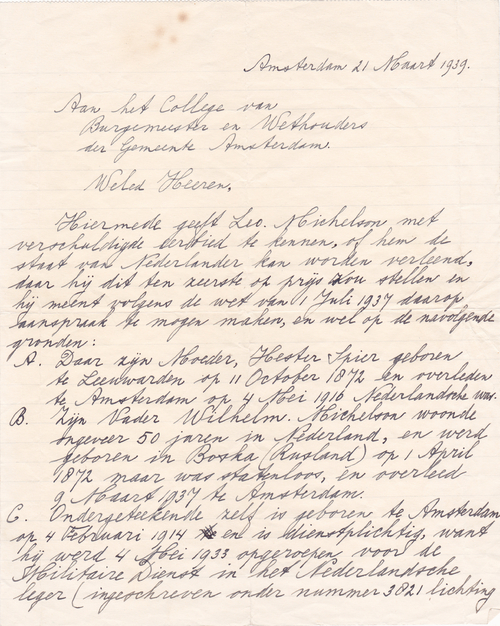 Amsterdam 21 Maart 1939.
Aan het College van
Burgemeester en Wethouders
der Gemeente Amsterdam.
Weled Heeren,
Hiermede geeft Leo. Michelson met
verschuldigde eerbied te kennen, of hem de
staat van Nederlander kan worden verleend,
daar hij dit ten zeerste op prijs zou stellen en
hij meent volgens de wet van 1 Juli 1937 daarop
aanspraak te mogen maken, en wel op de navolgende
gronden:
A. Daar zijn Moeder, Hester Spier geboren
te Leeuwarden op 11 October 1872 en overleden
te Amsterdam op 4 Mei 1916 Nederlandsch was.
B. Zijn Vader Wilhelm. Michelson woonde
ongeveer 50 jaren in Nederland, en werd
geboren in Boska (Rusland) op 1 April
1872 maar was statenloos, en overleed
9 Maart 1937 te Amsterdam.
C. Ondergeteekende zelf is geboren te Amsterdam
op 4 Februari 1914 en is dienstplichtig, want
hij werd 4 Mei 1933 opgeroepen voor de
Militaire Dienst in het Nederlandsche
leger (ingeschreven onder nummer 3821 lichting